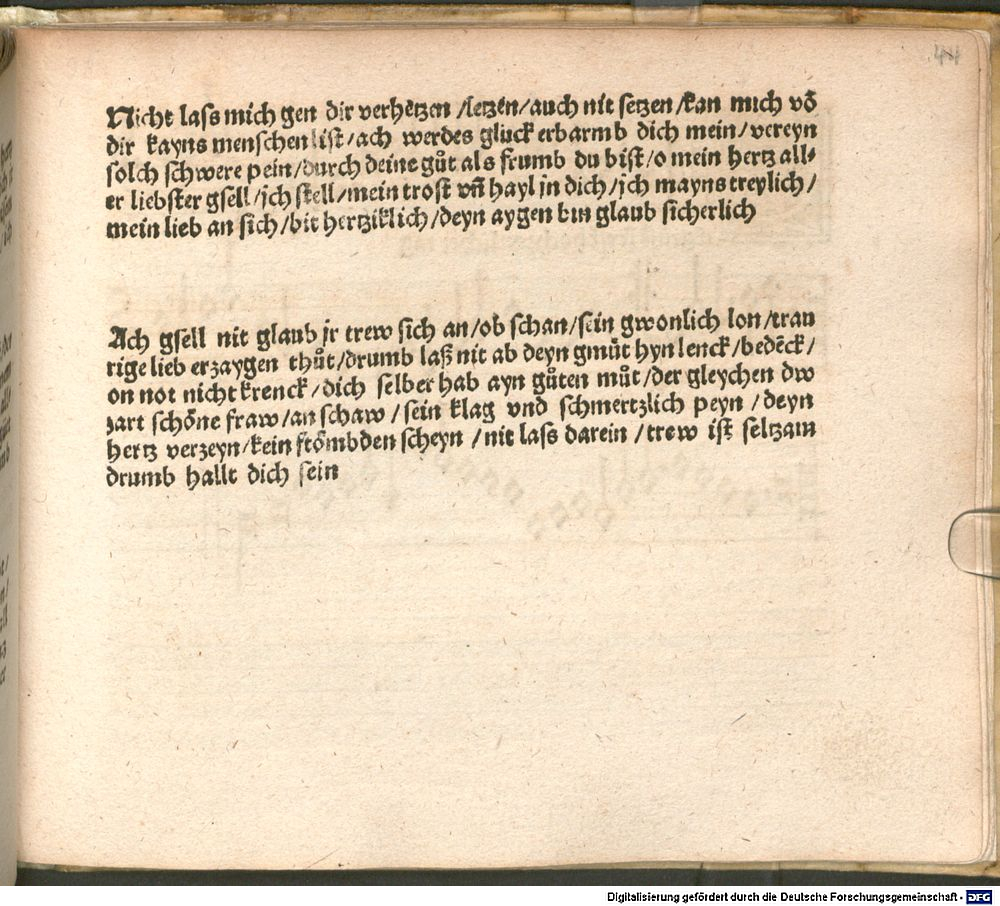 44
Nicht lass mich gen dir verhetzen /letzen/auch nit setzen/kan mich vō
dir kayns menschen list/ach werdes gluck erbarmb dich mein/vereyn
solch schwere pein/durch deine gůt als frumb du bist/o mein hertz all-
er liebster gsell/jch stell/mein trost vñ hayl jn dich/jch mayns treylich/
mein lieb an sich/bit hertziklich/deyn aygen bin glaub sicherlich
Ach gsell nit glaub jr trew sich an/ob schan/sein gwonlich lon/trau
rige lieb erzaygen thůt/drumb laß nit ab deyn gmůt hyn lenck/bedēck/
on not nicht krenck/dich selber hab ayn gůten můt/der gleychen dw
zart schöne fraw/an schaw/sein klag vnd schmertzlich peyn/deyn
hertz verzeyn/kein frömbden scheyn/nit lass darein/trew ist seltzam
drumb hallt dich sein
Digitalisierung gefördert durch die Deutsche Forschungsgemeinschaft - DFG